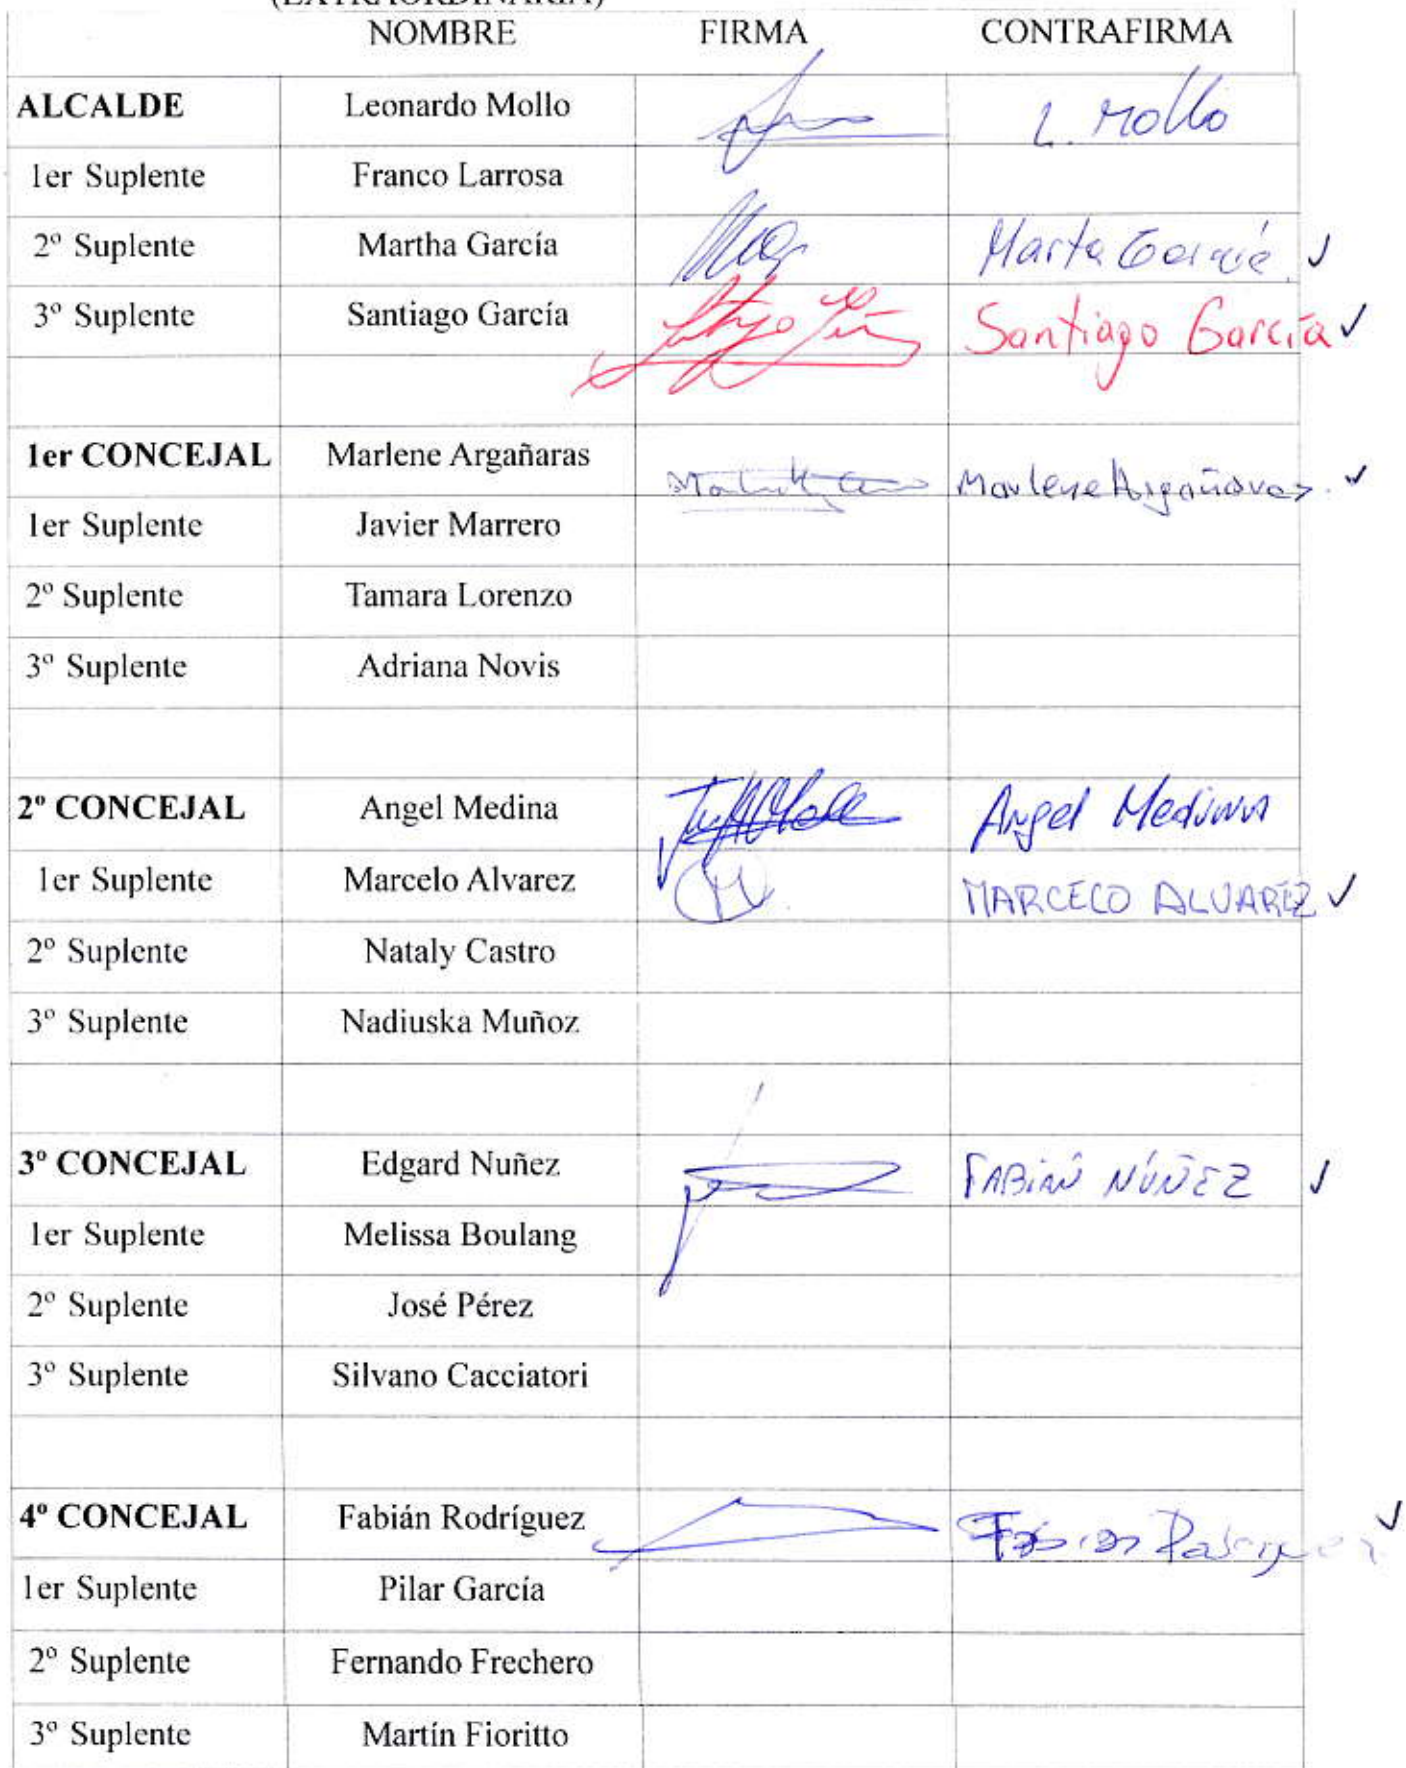 (EXTRAORDINARIA)
NOMBRE FIRMA CONTRAFIRMA
ALCALDE Leonardo Mollo L. Mollo
1er Suplente Franco Larrosa
2º Suplente Martha García Marta García ✓
3º Suplente Santiago García Santiago García ✓
1er CONCEJAL Marlene Argañaras Marlene Argañaras. ✓
1er Suplente Javier Marrero
2º Suplente Tamara Lorenzo
3º Suplente Adriana Novis
2º CONCEJAL Angel Medina Angel Medina
1er Suplente Marcelo Alvarez M MARCELO ALVAREZ ✓
2º Suplente Nataly Castro
3º Suplente Nadiuska Muñoz
3º CONCEJAL Edgard Nuñez FABIÁN NÚÑEZ ✓
1er Suplente Melissa Boulang
2º Suplente José Pérez
3º Suplente Silvano Cacciatori
4º CONCEJAL Fabián Rodríguez Fabian ✓
1er Suplente Pilar García
2º Suplente Fernando Frechero
3º Suplente Martín Fioritto